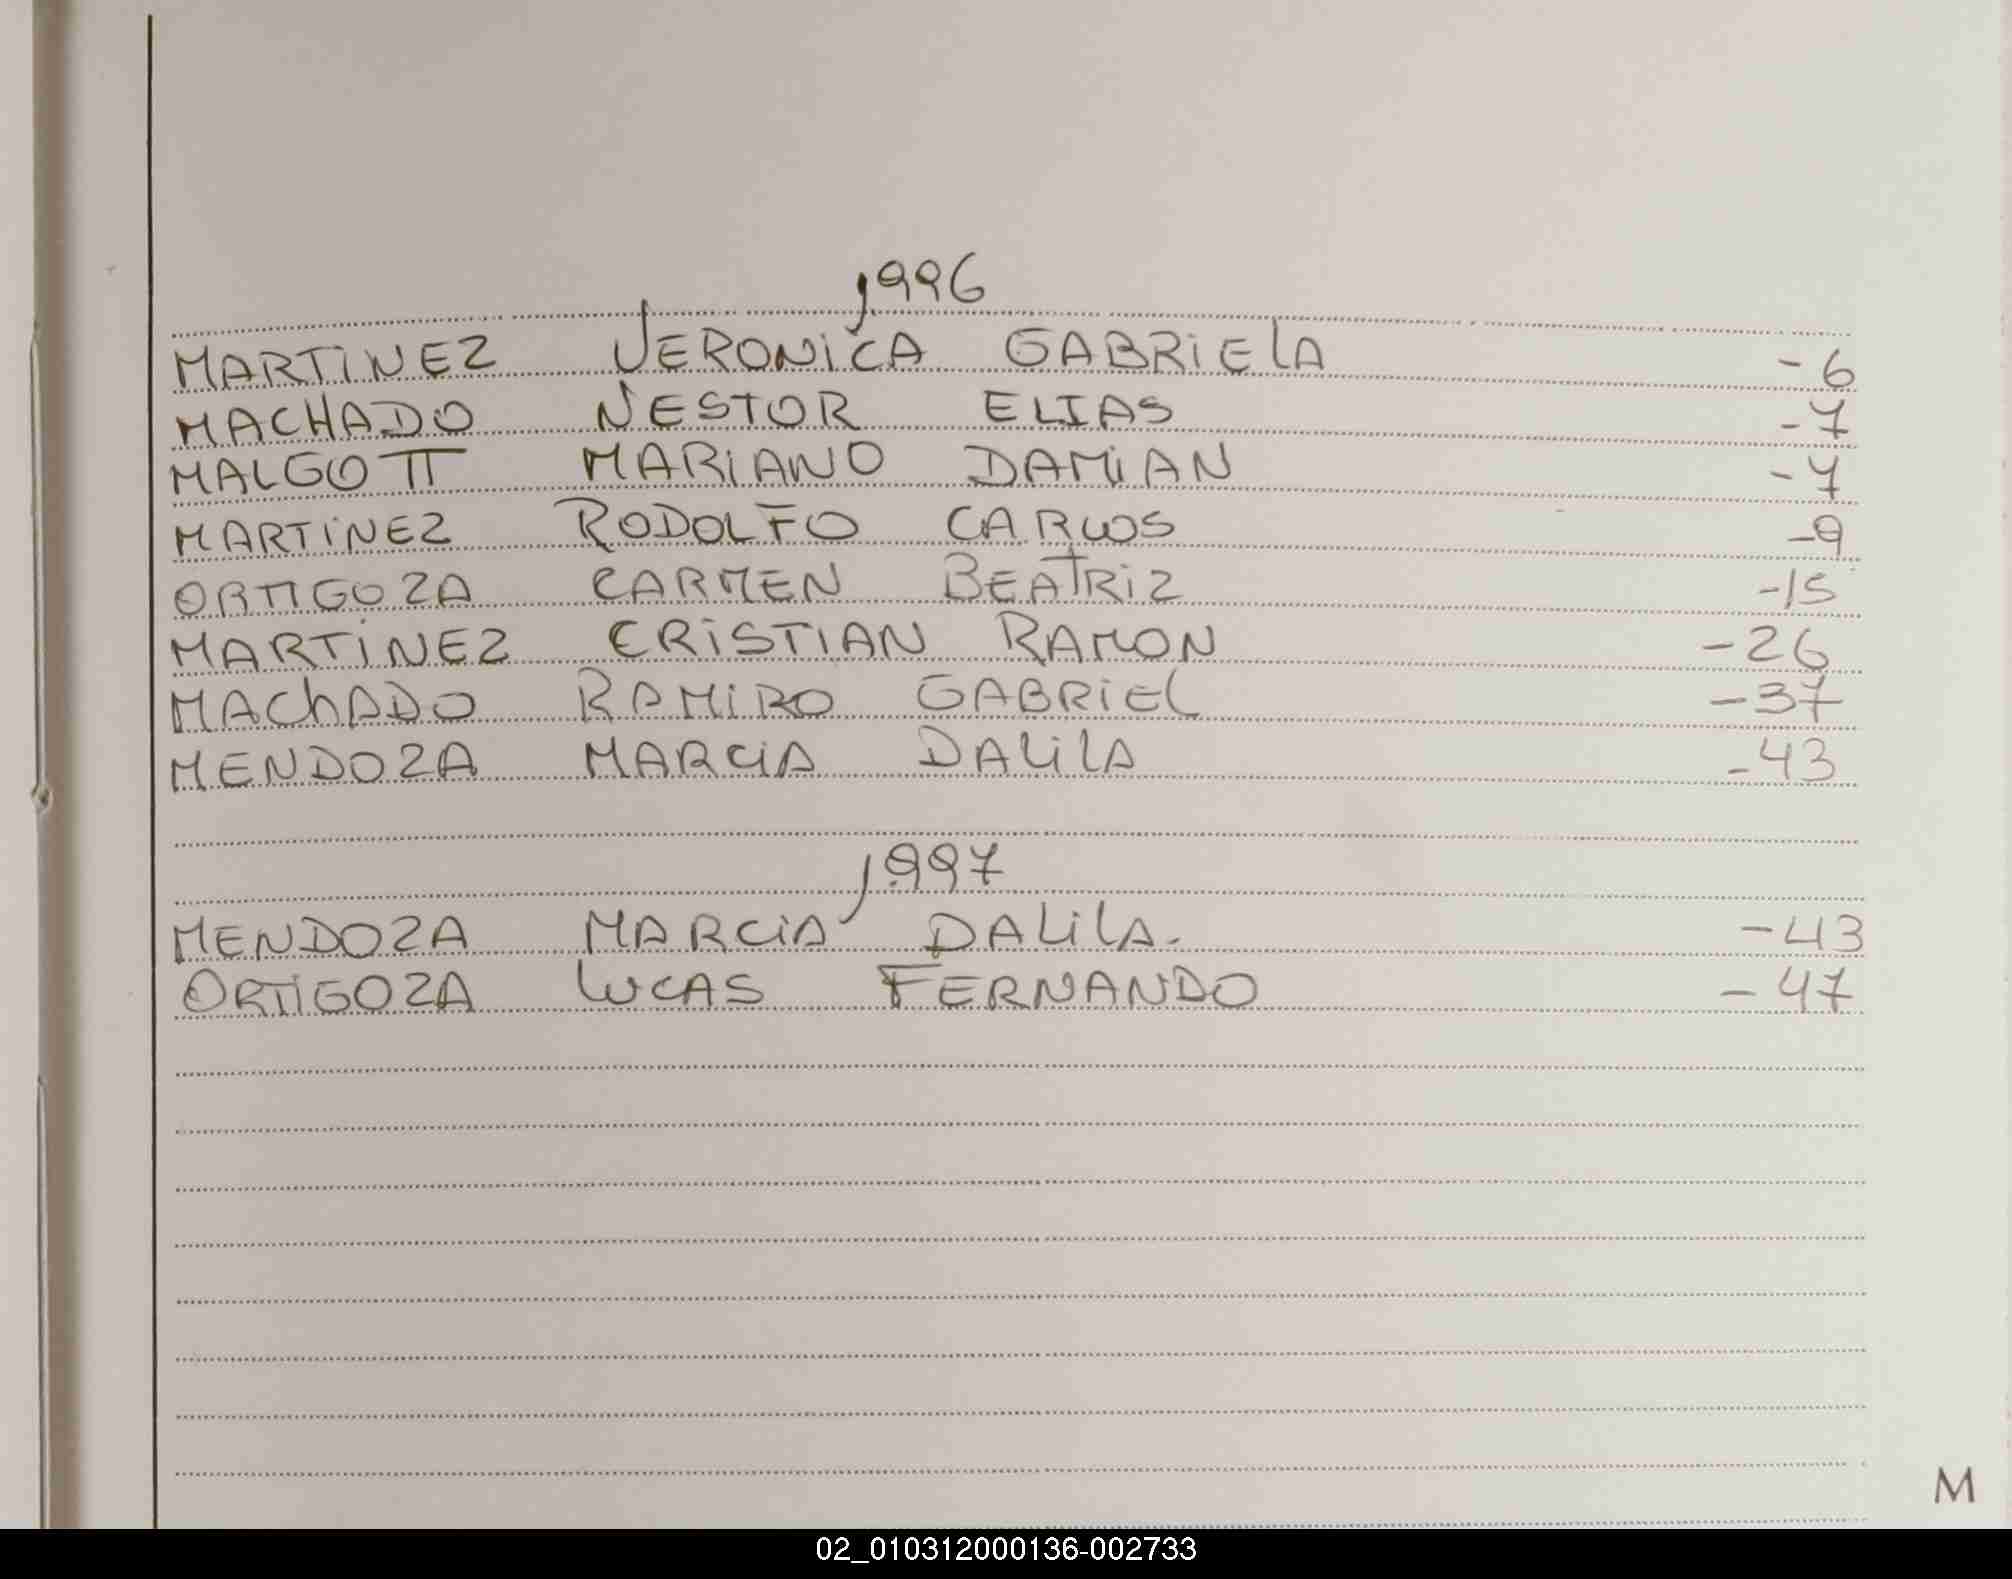 1996
MARTiNEZ VERONiCA GABRiElA -6
MACHADO NESTOR ELIAS -7
MALGOTTI MARiANO DAMiAN -7
MARTiNEZ RODOLFO CARLOS -9
ORTIGOZA CARMEN BEATRiZ -15
MARTiNEZ CRiSTIAN RAMON -26
MAChADO RAMiRO GABRiEL -37
MENDOZA MARCiA DALilA -43
1997
MENDOZA MARCiA DALilA. -43
ORTiGOZA LUCAS FERNANDO -47
M
02_010312000136-002733